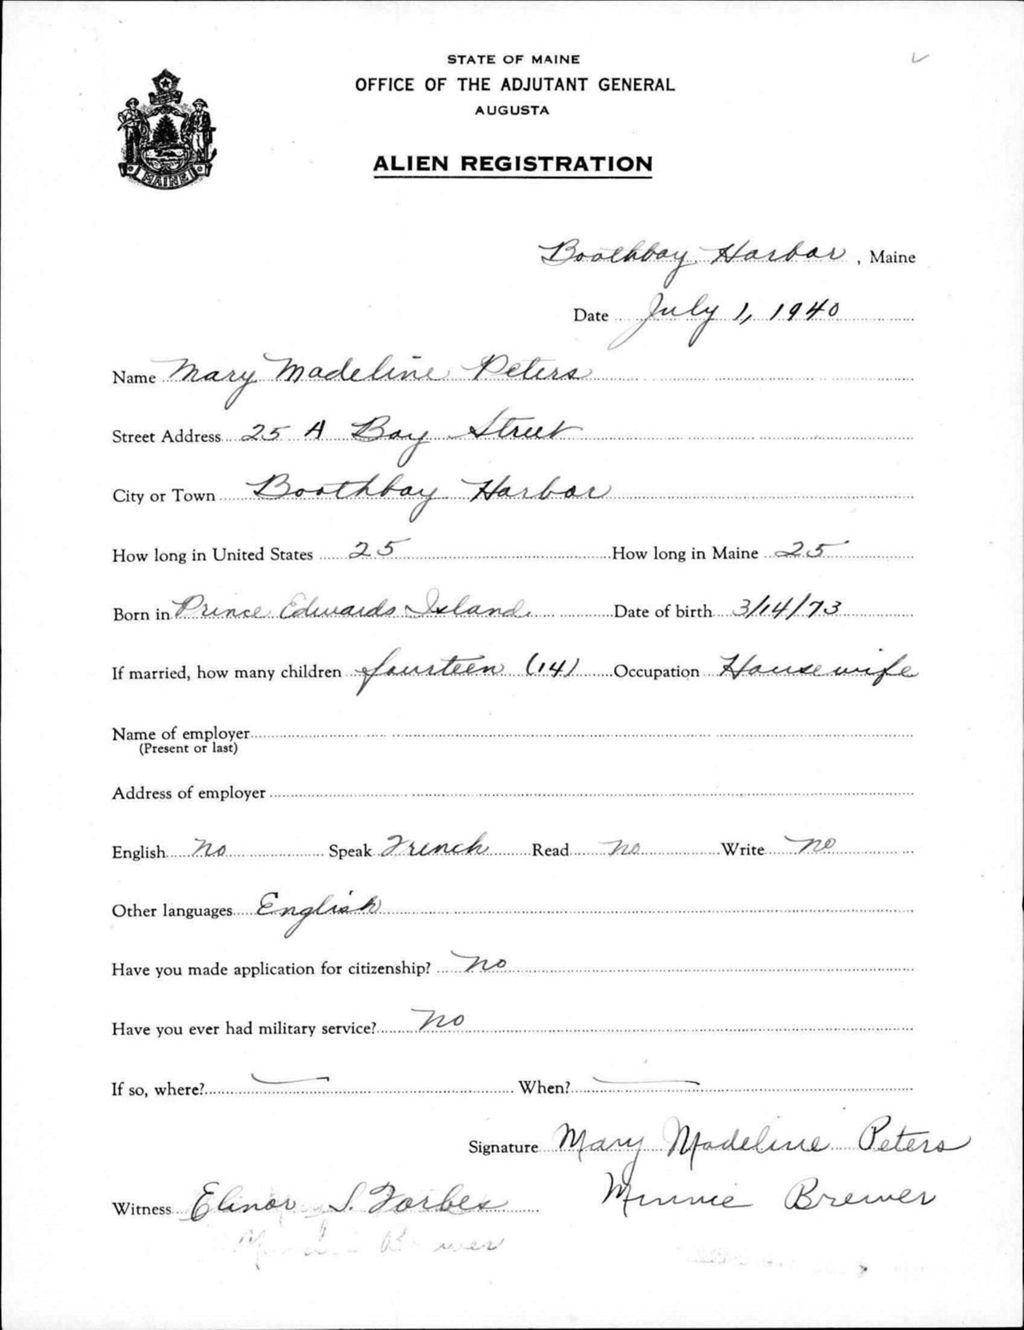 STATE OF MAINE
OFFICE OF THE ADJUTANT GENERAL
AUGUSTA
MAINE
ALIEN REGISTRATION
Boothbay Harbor, Maine
Date July 1, 1940
Name Mary Madeline Peters
Street Address 25 A Bay Street
City or Town Boothbay Harbor
How long in United States 25 How long in Maine 25
Born in Prince Edwards Island. Date of birth 3/14/73
If married, how many children fourteen (14) Occupation Housewife
Name of employer
(Present or last)
Address of employer
English No Speak French Read no Write no
Other languages English
Have you made application for citizenship? No
Have you ever had military service? No
If so, where? — When? —
Signature Mary Madeline Peters
Witness Elinor S. Forbes Minnie Brewer